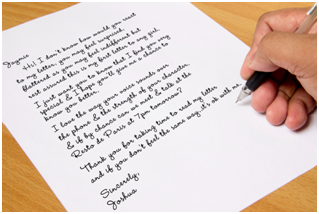 Jaynie
Hi! I don't know how would you react
to my letter, you may feel surprised,
flattered as you may feel indifferent but
rest assured this is my first letter to any girl.
I just want you to know that I find you very
special & I hope you'll give me a chance to
know you better.
I love the way your voice sounds over
the phone & the strength of your character.
& if by chance can we meet & talk at the
Resto de Paris at 7pm tomorrow?
Thank you for taking time to read my letter
and if you don't feel the same way it's ok with me.
Sincerely,
Joshua